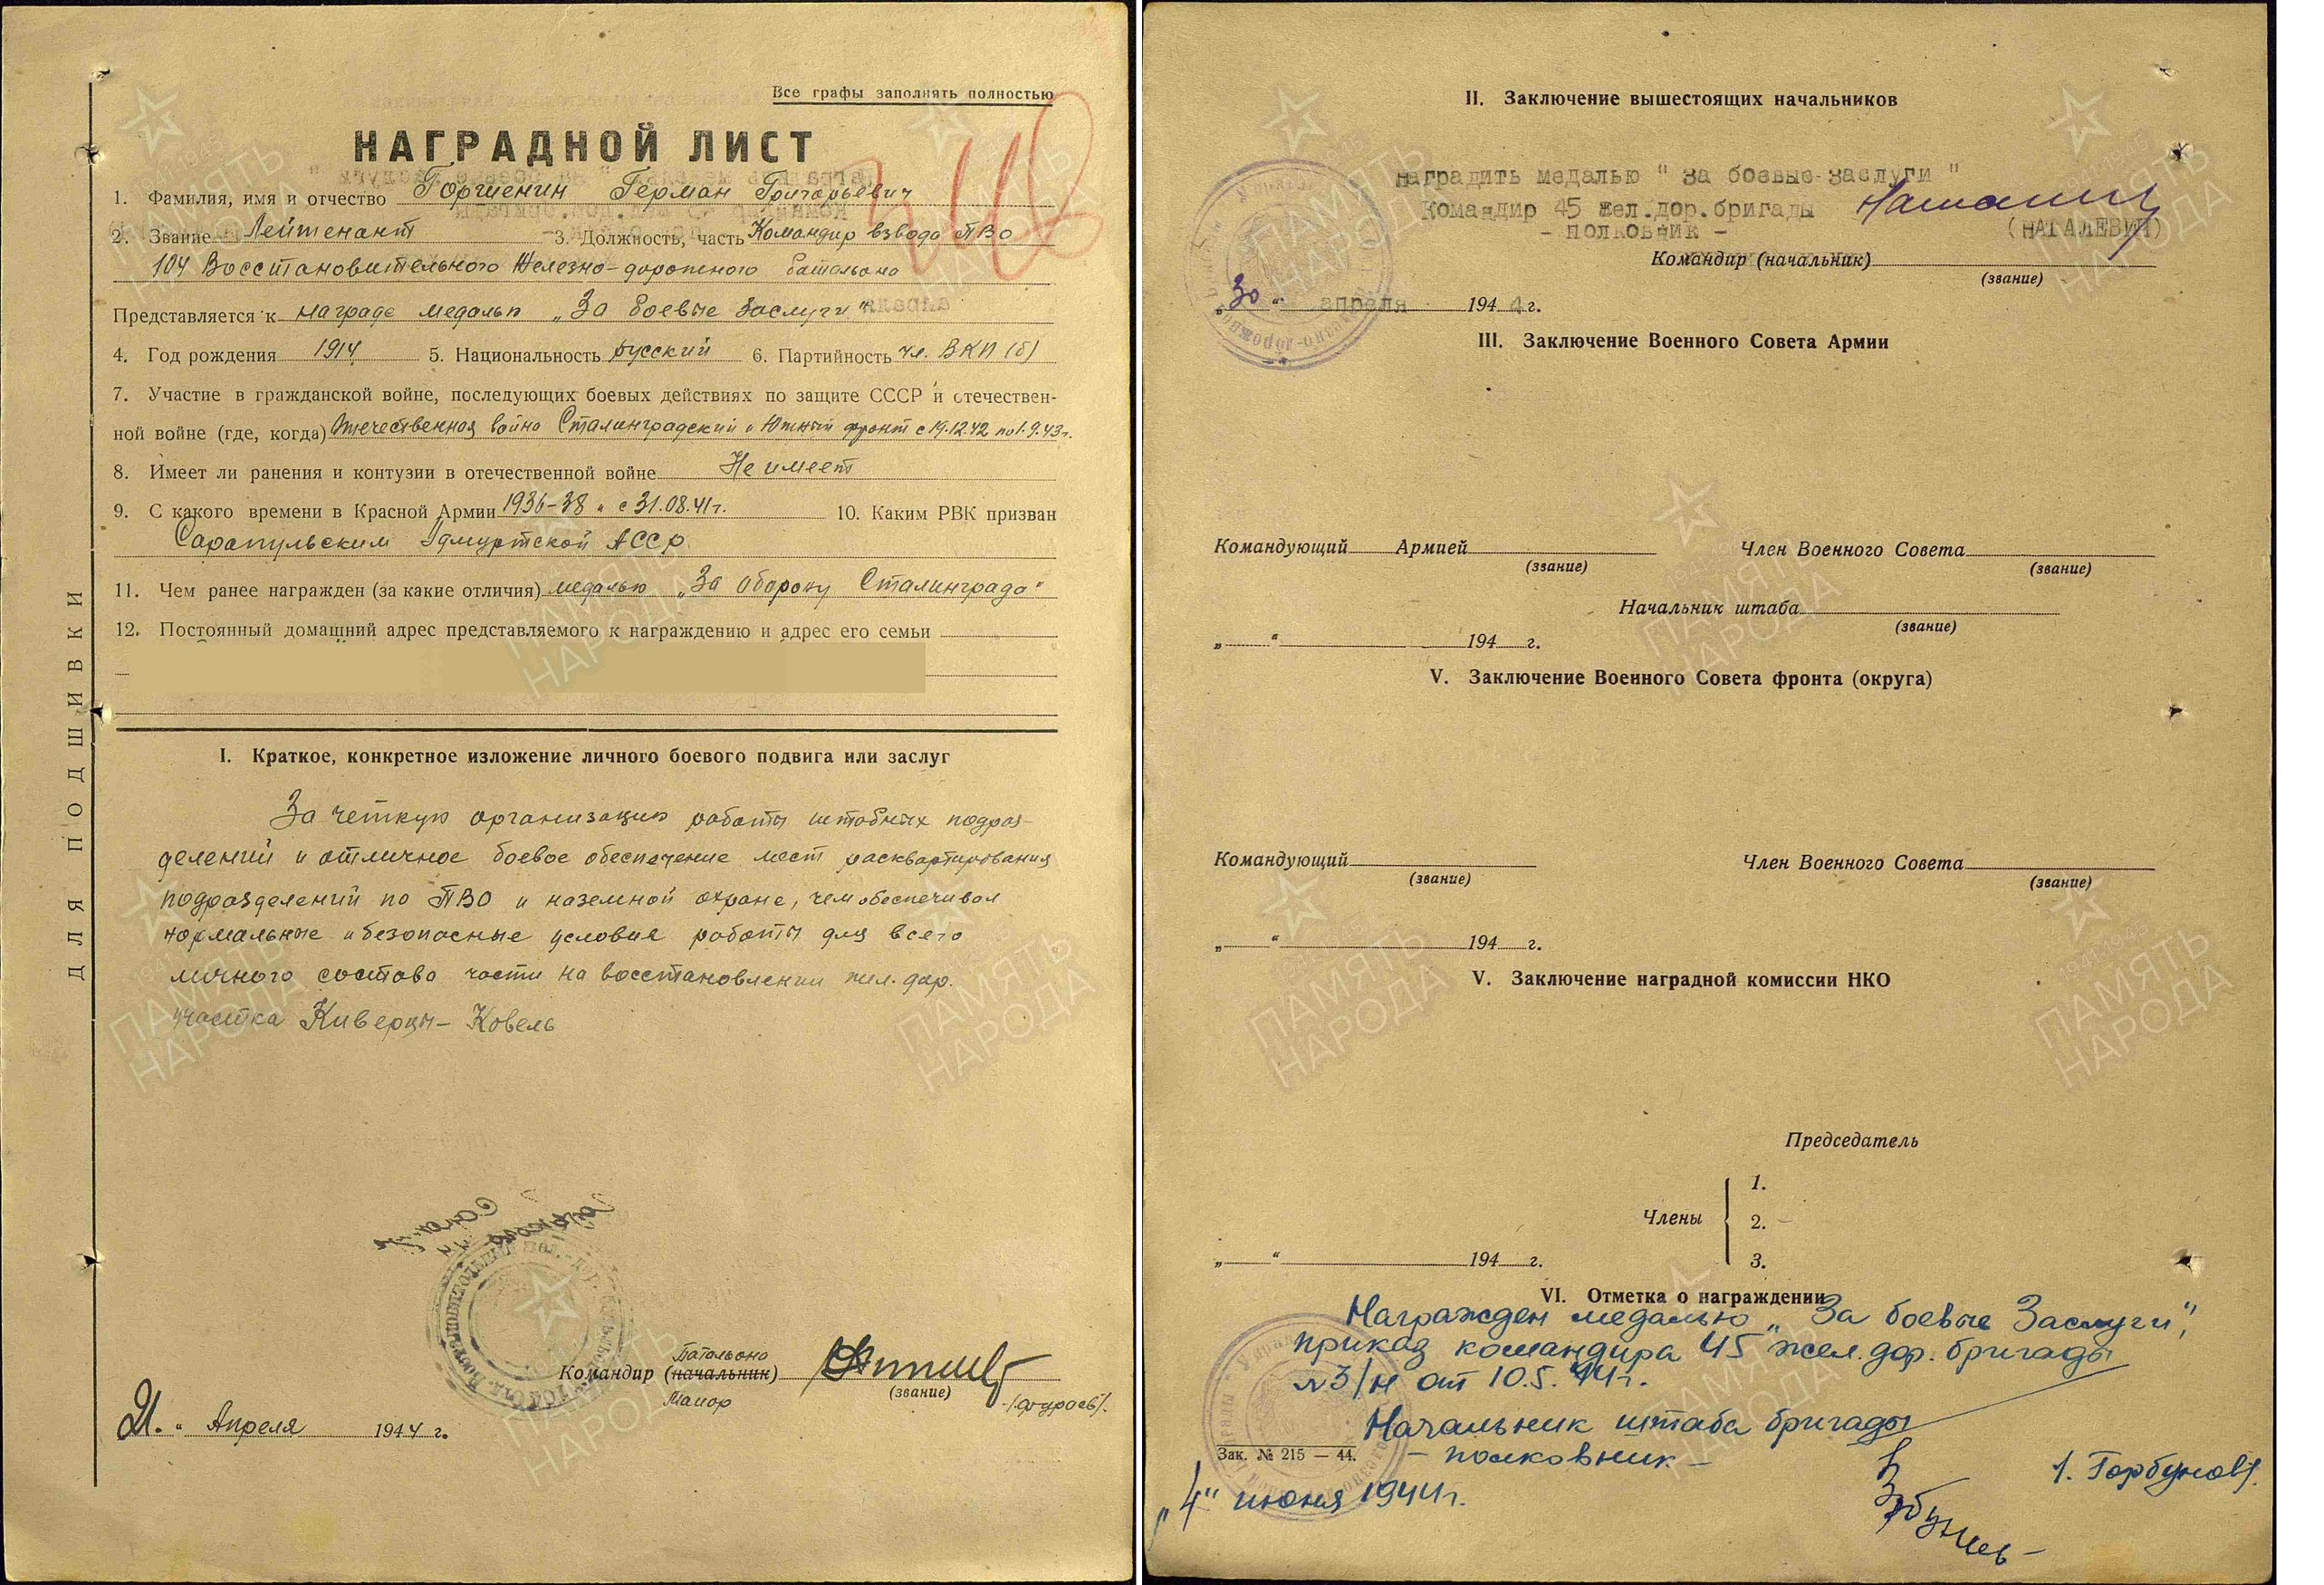 Все графы заполнять полностью
НАГРАДНОЙ ЛИСТ
1. Фамилия, имя и отчество Горшенин Герман Григорьевич
2. Звание Лейтенант 3. Должность, часть Командир взвода ПВО
104 Восстановительного Железно-дорожного батальона
Представляется к награде медалью „За боевые заслуги"
4. Год рождения 1914 5. Национальность русский 6. Партийность чл. ВКП(б)
7. Участие в гражданской войне, последующих боевых действиях по защите СССР и отечествен-
ной войне (где, когда) Отечественная война Сталинградский и Южный фронт с 19.12.42 по 1.9.43г.
8. Имеет ли ранения и контузии в отечественной войне Не имеет
9. С какого времени в Красной Армии 1936-38 и с 31.08.41г. 10. Каким РВК призван
Сарапульским Удмуртской АССР.
11. Чем ранее награжден (за какие отличия) медалью „За оборону Сталинграда"
12. Постоянный домашний адрес представляемого к награждению и адрес его семьи
ДЛЯ ПОДШИВКИ
I. Краткое, конкретное изложение личного боевого подвига или заслуг
За четкую организацию работы штабных подраз-
делений и отличное боевое обеспечение мест расквартирования
подразделений по ПВО и наземной охране, чем обеспечивал
нормальные и безопасные условия работы для всего
личного состава части на восстановлении жел. дор.
участка Киверцы - Ковель
батальона
Командир (начальник)
(звание)
Майор
21. " Апреля 1944 г.
II. Заключение вышестоящих начальников
Наградить медалью " За боевые заслуги "
Командир 45 жел.дор.бригады
- ПОЛКОВНИК - (НАТАЛЕВИЧ)
Командир (начальник)
(звание)
„30" апреля 1944 г.
III. Заключение Военного Совета Армии
Командующий Армией Член Военного Совета
(звание) (звание)
Начальник штаба
(звание)
„ " 194 г.
V. Заключение Военного Совета фронта (округа)
Командующий Член Военного Совета
(звание) (звание)
„ " 194 г.
V. Заключение наградной комиссии НКО
Председатель
1.
Члены 2.
3.
„ " 194 г.
VI. Отметка о награждении
Награжден медалью „За боевые Заслуги",
приказ командира 45 жел. дор. бригады
№3/н от 10.5.44г.
Начальник штаба бригады
- полковник -
/. Горбунов/.
Зак. № 215 — 44.
„4" июня 1944г.
ПАМЯТЬ НАРОДА